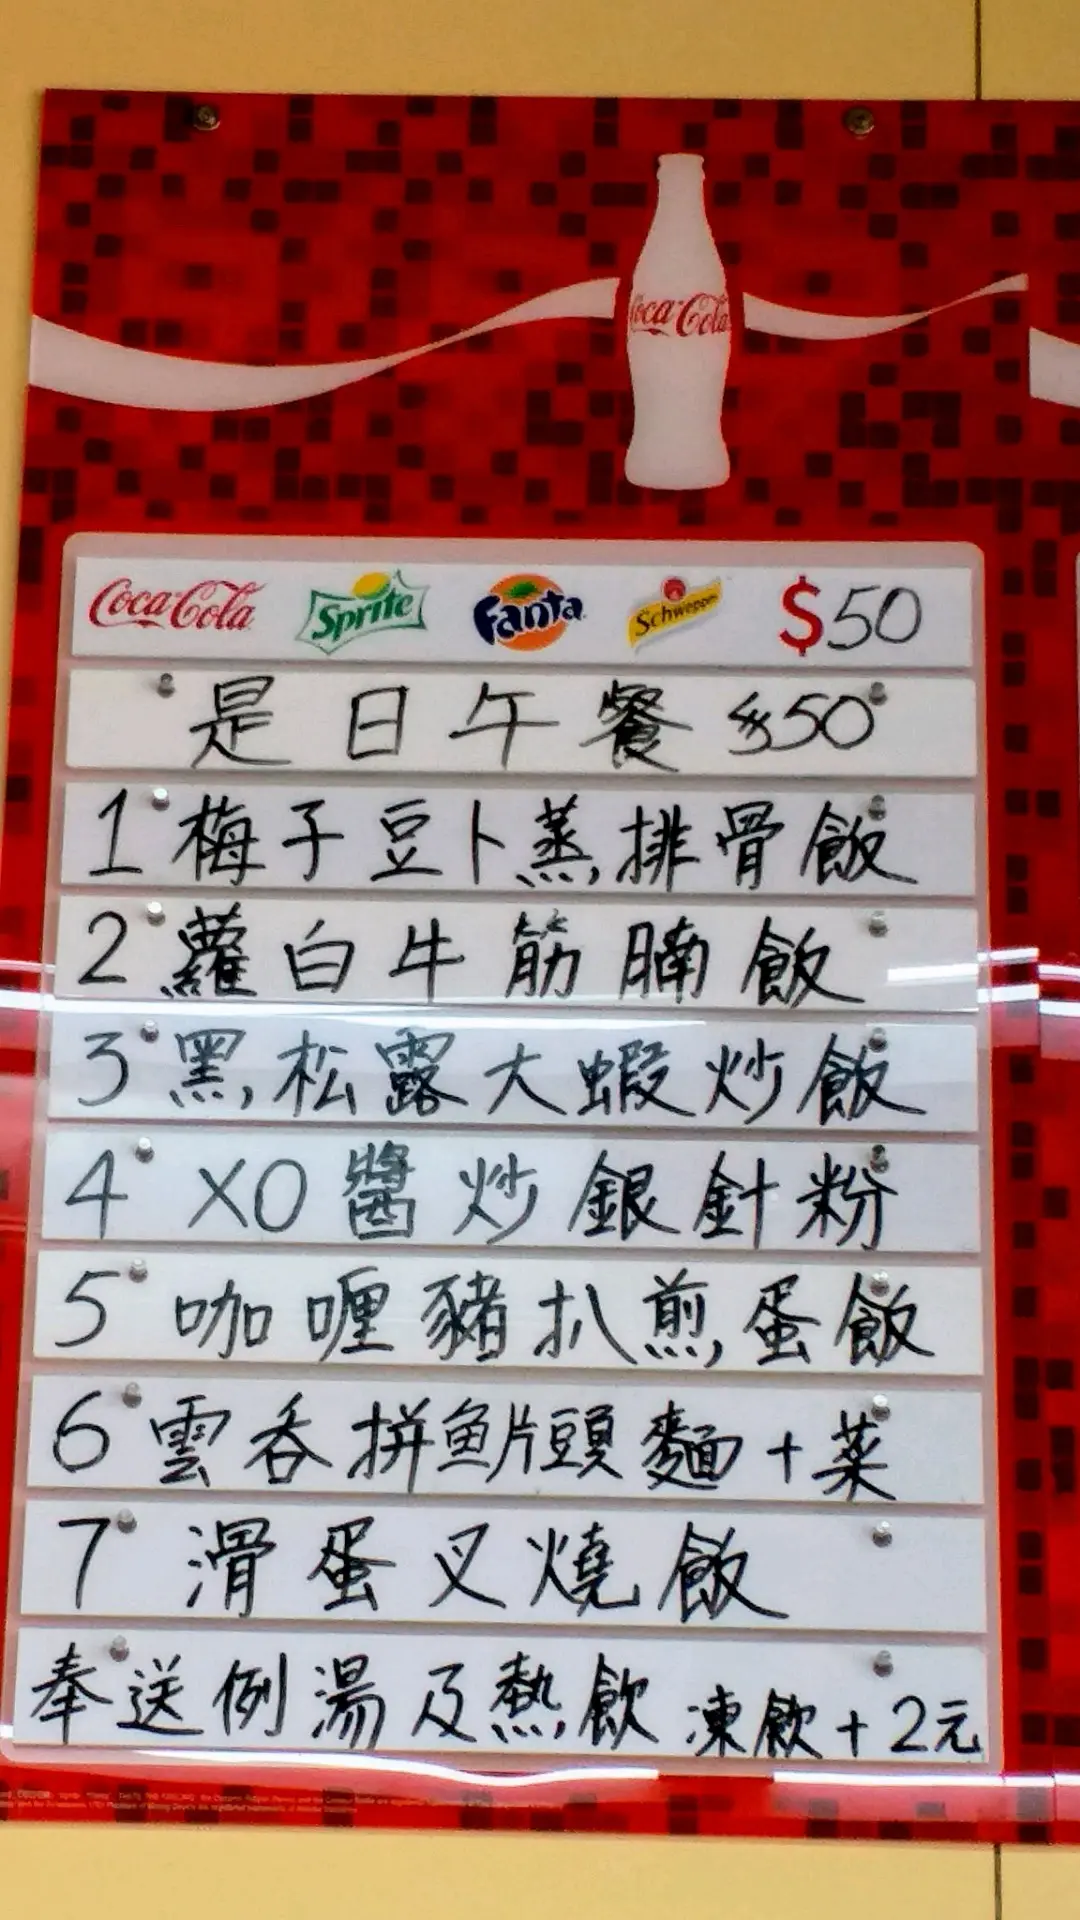 Coca-Cola
Coca-Cola Sprite Fanta Schweppes $50
是日午餐 $50
1 梅子豆卜蒸排骨飯
2 蘿白牛筋腩飯
3 黑松露大蝦炒飯
4 XO醬炒銀針粉
5 咖喱豬扒煎蛋飯
6 雲吞拼魚片頭麵+菜
7 滑蛋叉燒飯
奉送例湯及熱飲 凍飲+2元